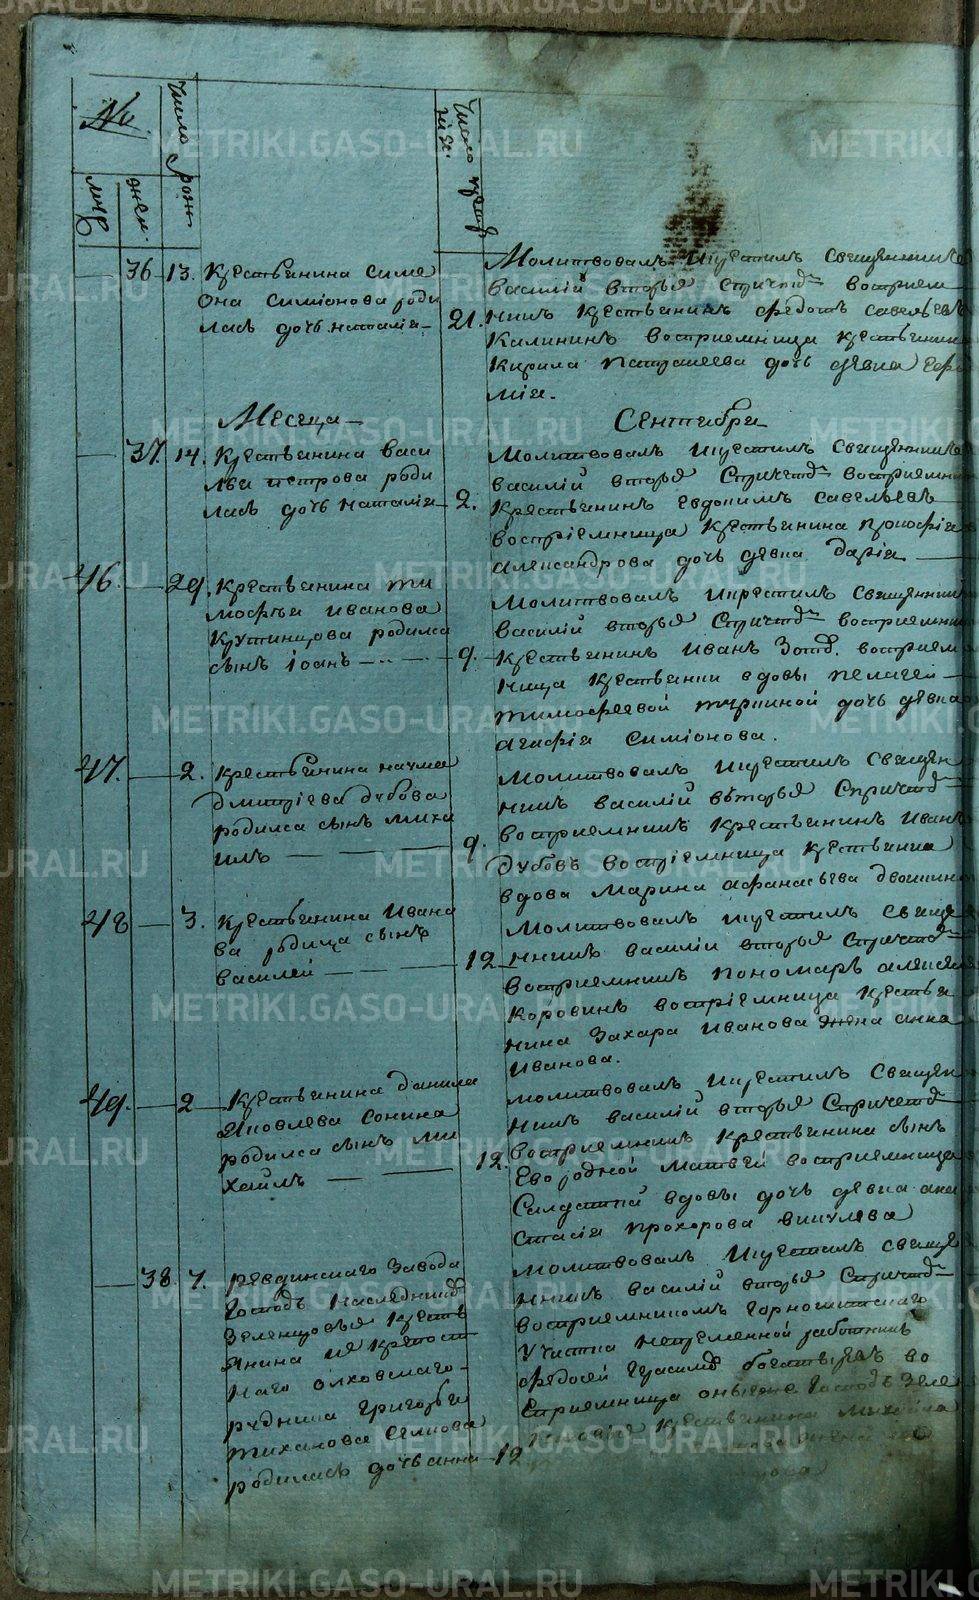 №
Число рож
Число крещ
муж
жен.
36 13. Крестьянина Симе
она Симионова роди
лась дочь Наталия 21.
Молитвовалъ и крестилъ священникъ
Василий Вторыя Спричтд восприем
никъ крестьянинъ Федотъ Савельевъ
Калининъ восприемница крестьянина
Кирила дочь девка
мия.
Месеца Сентября
37. 14. Крестьянина Васи
лья Петрова роди
лась дочь Наталия 2.
Молитвовалъ и крестилъ священникъ
Василий Вторыя Спричтд восприемни
крестьянинъ Евдокимъ Савельевъ
восприемница крестьянина Прокофия
Александрова дочь девка Дария
46. 29. Крестьянина Ти
мофея Иванова
Крутинцова родился
сынъ Иоанъ 9.
Молитвовалъ и крестилъ священникъ
Василий Вторыя Спричтд восприемни
крестьянинъ Иванъ Зотд. восприем
ница крестьянки вдовы Пелагеи
Тимофеевой дочь девка
Агафия Симионова.
47. 2. Крестьянина Наума
Дмитриева Дубова
родился сынъ Миха
илъ 9.
Молитвовалъ и крестилъ священ
никъ Василий Вторыя Спричтд
восприемникъ крестьянинъ Иванъ
Дубовъ восприемница крестьянина
вдова Марина Афанасьева
48 3. Крестьянина Ивана
ва родился сынъ
Василей 12
Молитвовалъ и крестилъ свяще
нникъ Василий Вторыя Спричтд
восприемникъ пономарь Алексей
Коровинъ восприемница крестья
нина Захара Иванова жена Анна
Иванова.
49. 2 Крестьянина Данила
Яковлева Сонина
родился сынъ Ми
хаилъ 12.
Молитвовалъ и крестилъ священ
никъ Василий Вторыя Спричетд
восприемникъ крестьянина сынъ
Ево родной Матвей восприемница
Салдатки вдовы дочь девка Ана
стасия Прохорова Викулева
38. 7. Ревдинскаго завода
Господъ Наследникд
Зеленцовыя крестья
янина из крепост
наго
рудника Григорья
Тиханова
родилась дочь Анна 12
Молитвовалъ и крестилъ свяще
нникъ Василий Вторыя Спричтд
восприемникомъ Горнощитскаго
участка непременной работникъ
Федосей Герасимд Богатыревъ во
сприемница Господъ Зеле
крестьянина Михаила
жена
METRIKI.GASO-URAL.RU